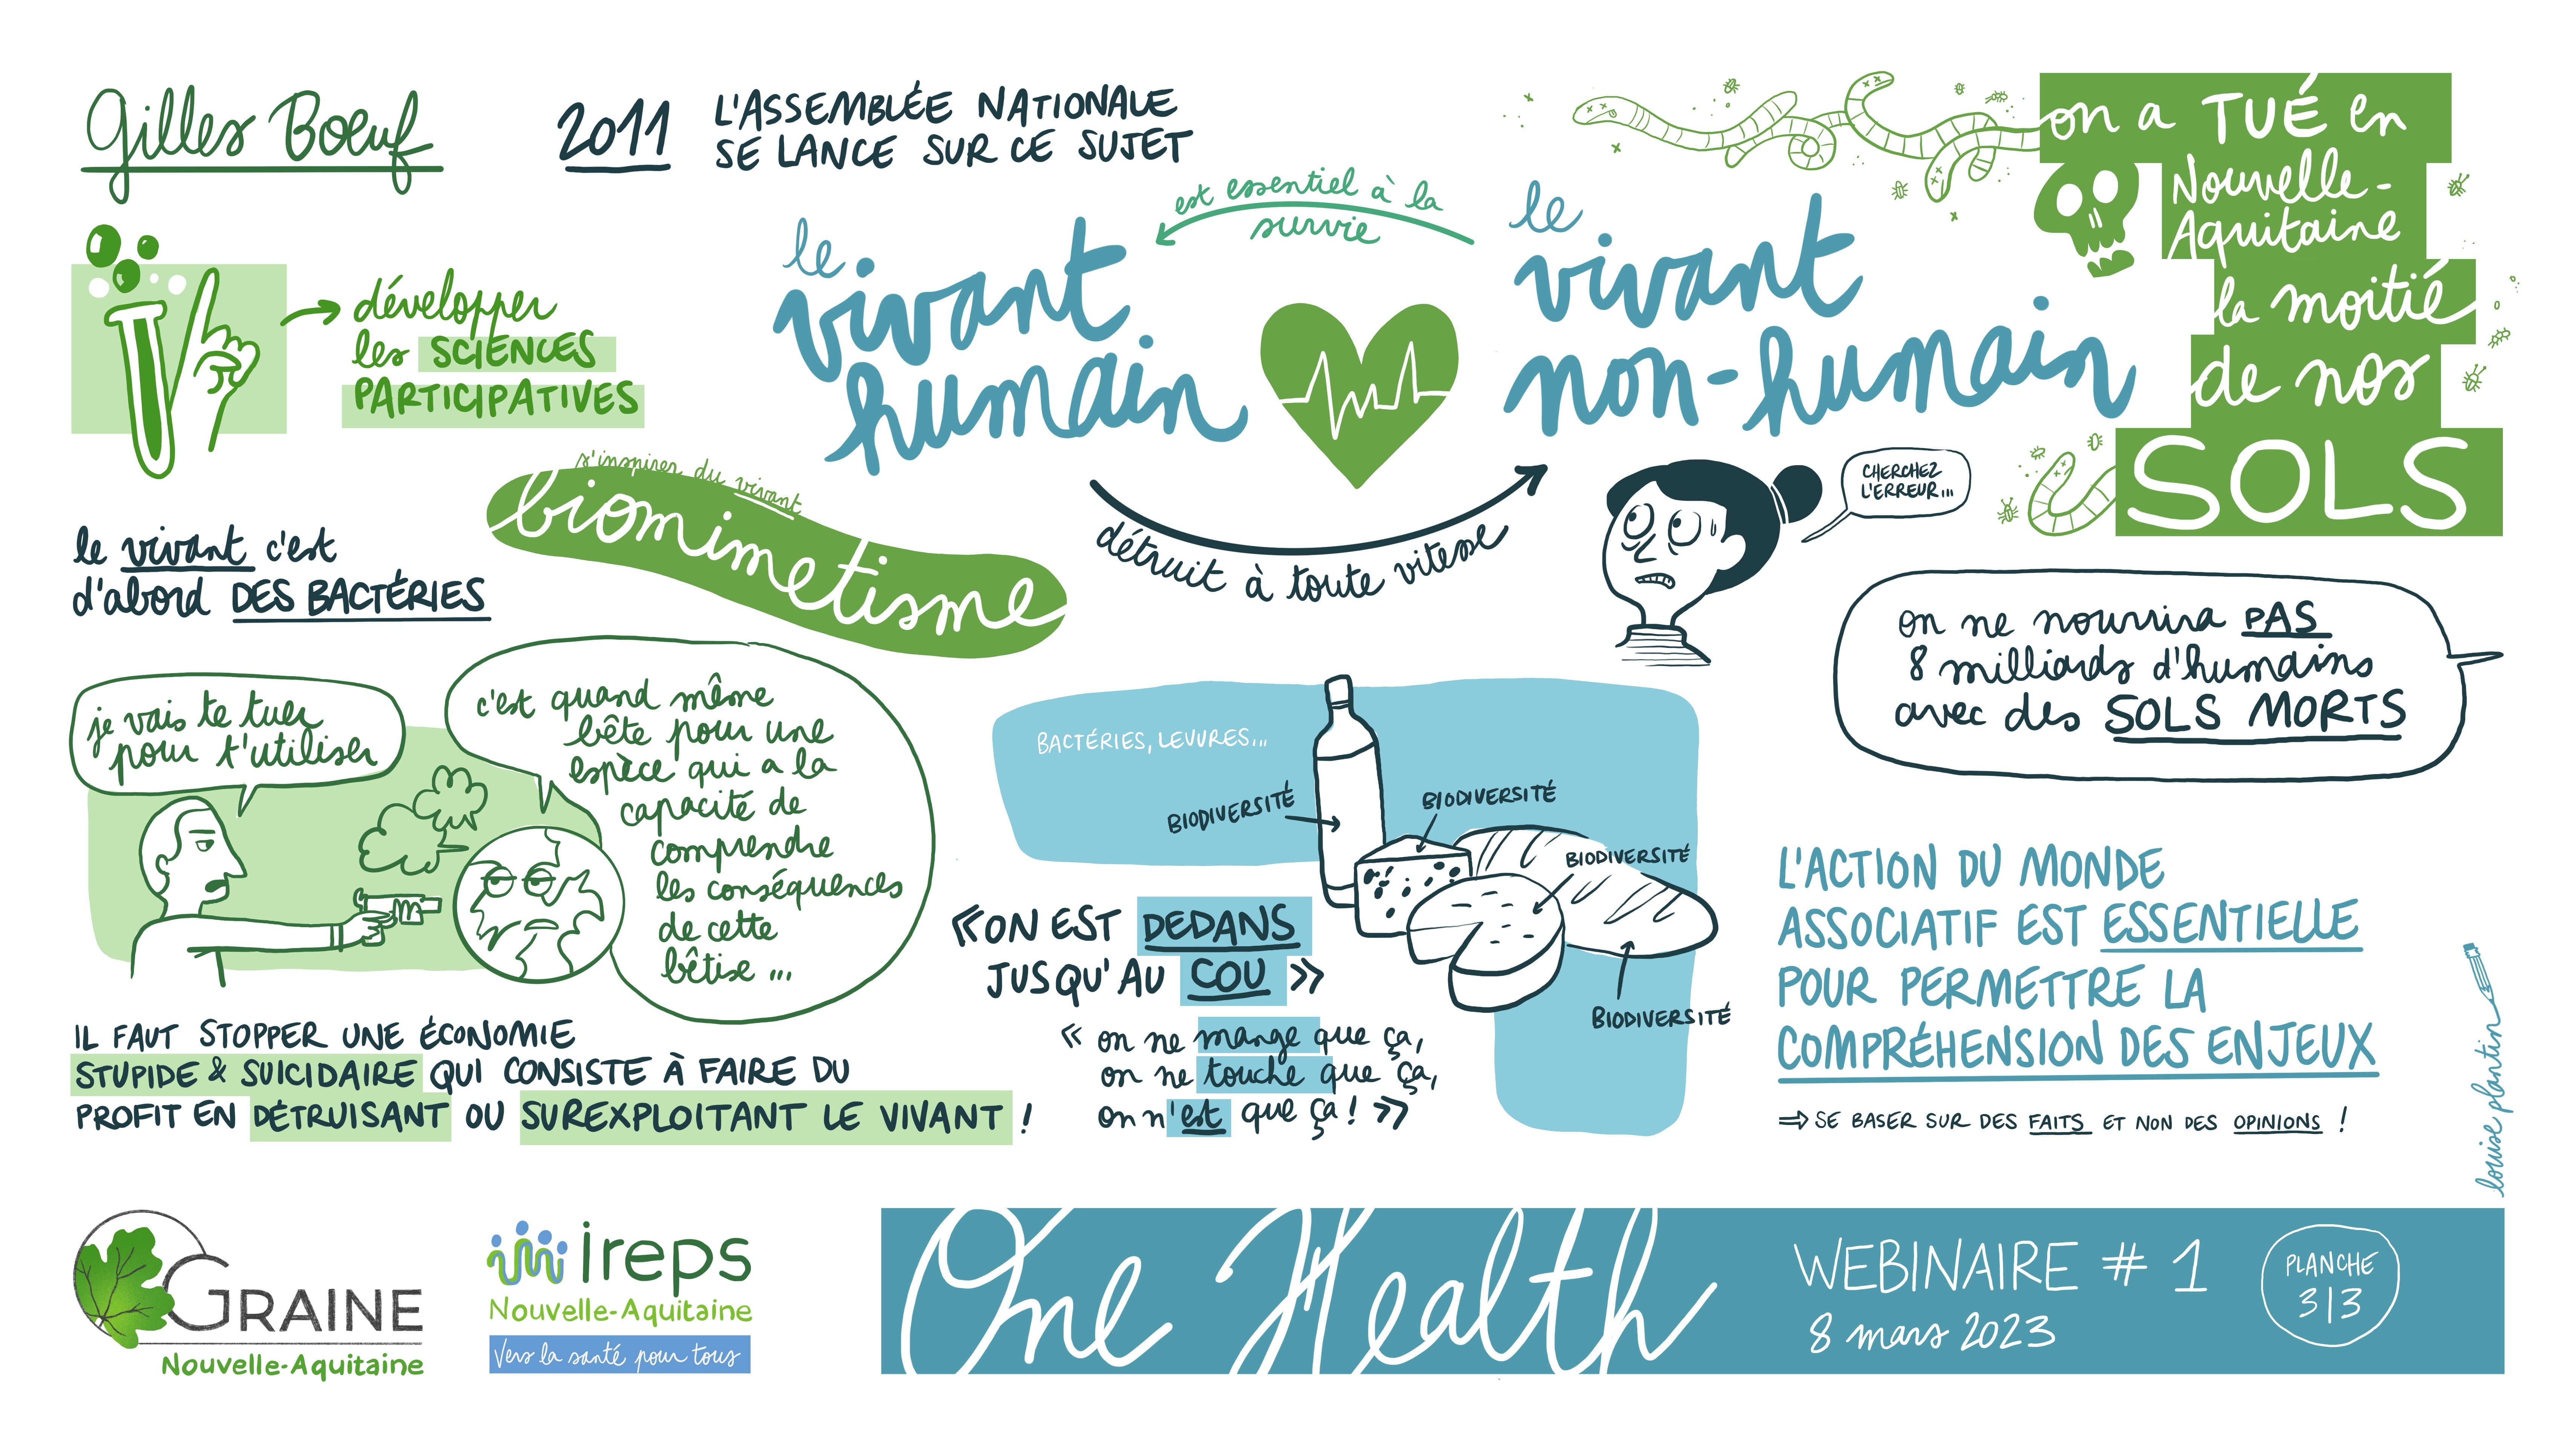 Gilles Bœuf
2011
L'ASSEMBLÉE NATIONALE
SE LANCE SUR CE SUJET
développer
les SCIENCES
PARTICIPATIVES
le
vivant
humain
est essentiel à la
survie
le
vivant
non-humain
détruit à toute vitesse
CHERCHEZ
L'ERREUR...
on a TUÉ en
Nouvelle-
Aquitaine
la moitié
de nos
SOLS
s'inspirer du vivant
biomimetisme
le vivant c'est
d'abord DES BACTÉRIES
je vais te tuer
pour t'utiliser
c'est quand même
bête pour une
espèce qui a la
capacité de
comprendre
les conséquences
de cette
bêtise ...
IL FAUT STOPPER UNE ÉCONOMIE
STUPIDE & SUICIDAIRE QUI CONSISTE À FAIRE DU
PROFIT EN DÉTRUISANT OU SUREXPLOITANT LE VIVANT !
BACTÉRIES, LEVURES...
BIODIVERSITÉ
BIODIVERSITÉ
BIODIVERSITÉ
BIODIVERSITÉ
« ON EST DEDANS
JUSQU'AU COU »
« on ne mange que ça,
on ne touche que ça,
on n'est que ça ! »
on ne nourrira PAS
8 milliards d'humains
avec des SOLS MORTS
L'ACTION DU MONDE
ASSOCIATIF EST ESSENTIELLE
POUR PERMETTRE LA
COMPRÉHENSION DES ENJEUX
⇒ SE BASER SUR DES FAITS ET NON DES OPINIONS !
louise plantin
GRAINE
Nouvelle-Aquitaine
ireps
Nouvelle-Aquitaine
Vers la santé pour tous
One Health
WEBINAIRE # 1
8 mars 2023
PLANCHE
3|3